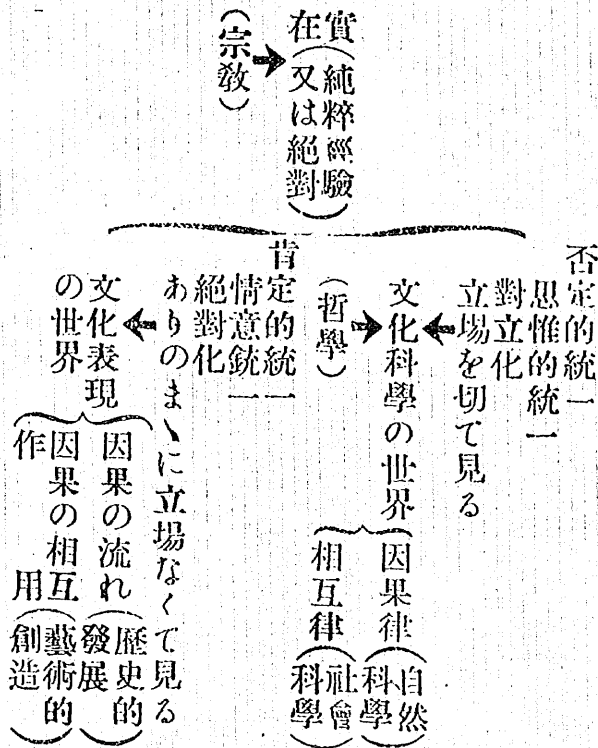 實在（純粹經驗
又は絕對）
（宗教）
否定的統一
思惟的統一
對立化
立場を切て見る
文化科學の世界
因果律（自然
科學）
相互律（社會
科學）
（哲學）
肯定的統一
情意銃一
絕對化
ありのまゝに立場なくて見る
文化表現
の世界
因果の流れ（歷史的
發展）
因果の相互
作用（藝術的
創造）